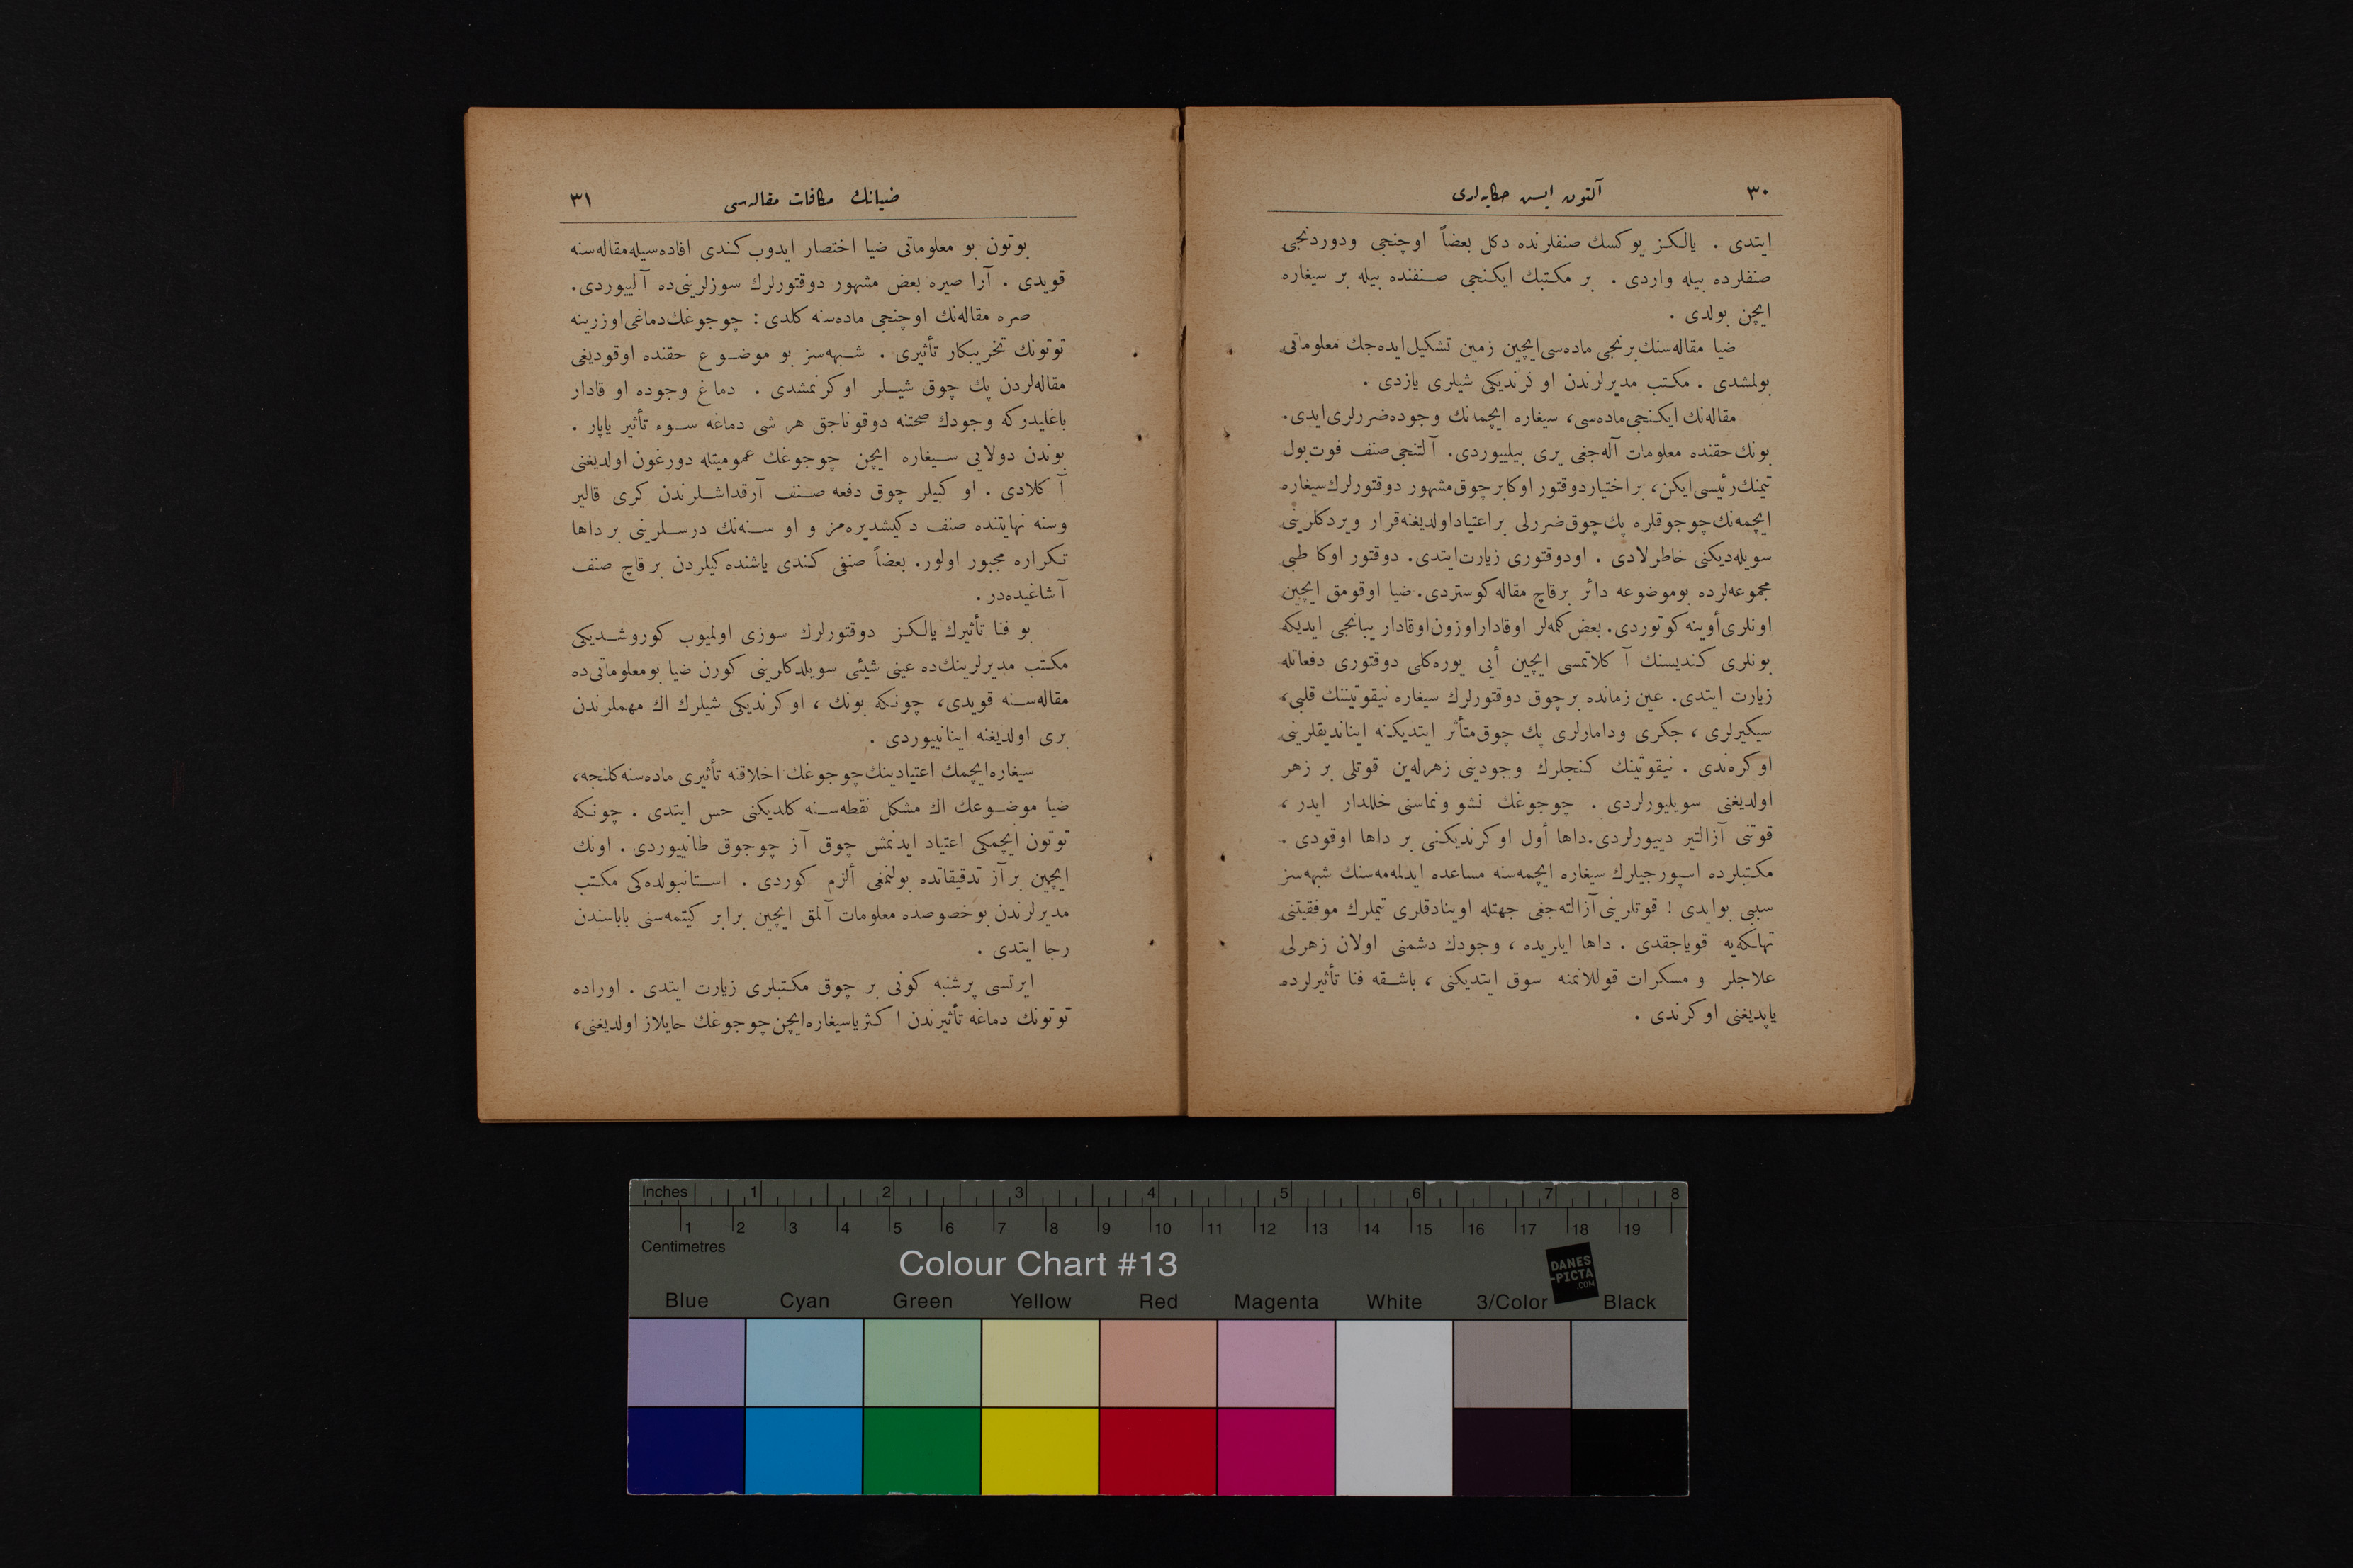 ٣٠
آلتون ایس حكایه‌لری
ایتدی . یالكز یوكسك صنفلرنده دكل بعضاً اوچنجی ودوردنجی
صنفلرده بیله واردی . بر مكتبك ایكنجی صنفنده بیله بر سیغاره
ایچن بولدی .
ضیا مقاله‌سنك برنجی ماده‌سی ایچین زمین تشكیل ایده‌جك معلوماتی
بولمشدی . مكتب مدیرلرندن اوكرندیكی شیلری یازدی .
مقاله‌نك ایكنجی ماده‌سی، سیغاره ایچمه‌نك وجوده ضررلری ایدی.
بونك حقنده معلومات آله‌جغی یری بیلییوردی. آلتنجی صنف فوت بول
تیمنك رئیسی ایكن، بر اختیار دوقتور اوكا بر چوق مشهور دوقتورلرك سیغاره
ایچمه‌نك چوجوقلره پك چوق ضررلی بر اعتیاد اولدیغنه قرار ویردكلرینی
سویله‌دیكنی خاطرلادی . او دوقتوری زیارت ایتدی. دوقتور اوكا طبی
مجموعه‌لرده بو موضوعه دائر برقاچ مقاله كوستردی. ضیا اوقومق ایچین
اونلری أوینه كوتوردی. بعض كلمه‌لر اوقادار اوزون اوقادار یبانجی ایدیكه
بونلری كندیسنك آكلاتمسی ایچین أیی یوره‌كلی دوقتوری دفعاتله
زیارت ایتدی. عین زمانده بر چوق دوقتورلرك سیغاره نیقوتیننك قلبی،
سیكیرلری ، جكری ودامارلری پك چوق متأثر ایتدیكنه ایناندیقلرینی
اوكره‌ندی . نیقوتینك كنجلرك وجودینی زهرله‌ین قوتلی بر زهر
اولدیغنی سویلیورلردی . چوجوغك نشو ونماسنی خللدار ایدر ،
قوتنی آزالتیر دییورلردی. داها أول اوكرندیكنی بر داها اوقودی .
مكتبلرده اسپورجیلرك سیغاره ایچمه‌سنه مساعده ایدلمه‌مه‌سنك شبهه‌سز
سببی بوایدی ! قوتلرینی آزالته‌جغی جهتله اوینادقلری تیملرك موفقیتنی
تهلكه‌یه قویاجقدی . داها ایاریده ، وجودك دشمنی اولان زهرلی
علاجلر و مسكرات قوللانمنه سوق ایتدیكنی ، باشقه فنا تأثیرلرده
یاپدیغنی اوكرندی .
ضیانك مكافات مقاله‌سی
٣١
بوتون بو معلوماتی ضیا اختصار ایدوب كندی افاده‌سیله مقاله‌سنه
قویدی . آرا صیره بعض مشهور دوقتورلرك سوزلرینی‌ده آلییوردی.
صره مقاله‌نك اوچنجی ماده‌سنه كلدی : چوجوغك دماغی اوزرینه
توتونك تخریبكار تأثیری . شبهه‌سز بو موضوع حقنده اوقودیغی
مقاله‌لردن پك چوق شیلر اوكرنمشدی . دماغ وجوده او قادار
باغلیدركه وجودك صحتنه دوقوناجق هر شی دماغه سوء تأثیر یاپار .
بوندن دولایی سیغاره ایچن چوجوغك عمومیتله دورغون اولدیغنی
آكلادی . او كبیلر چوق دفعه صنف آرقداشلرندن كری قالیر
وسنه نهایتنده صنف دكیشدیره‌مز و او سنه‌نك درسلرینی بر داها
تكراره مجبور اولور. بعضاً صنفی كندی یاشنده كیلردن بر قاچ صنف
آشاغیده‌در .
بو فنا تأثیرك یالكز دوقتورلرك سوزی اولمیوب كوروشدیكی
مكتب مدیرلرینك‌ده عینی شیئی سویلدكلرینی كورن ضیا بو معلوماتی‌ده
مقاله‌سنه قویدی، چونكه بونك ، اوكرندیكی شیلرك اك مهملرندن
بری اولدیغنه اینانییوردی .
سیغاره ایچمك اعتیادینك چوجوغك اخلاقنه تأثیری ماده‌سنه كلنجه،
ضیا موضوعك اك مشكل نقطه‌سنه كلدیكنی حس ایتدی . چونكه
توتون ایچمكی اعتیاد ایدنمش چوق آز چوجوق طانییوردی . اونك
ایچین برآز تدقیقاتده بولنمغی ألزم كوردی . استانبولده‌كی مكتب
مدیرلرندن بو خصوصده معلومات آلمق ایچین برابر كیتمه‌سنی باباسندن
رجا ایتدی .
ایرتسی پرشنبه كونی بر چوق مكتبلری زیارت ایتدی . اوراده
توتونك دماغه تأثیرندن اكثریا سیغاره ایچن چوجوغك حایلاز اولدیغنی،
Inches 1 2 3 4 5 6 7 8
1 2 3 4 5 6 7 8 9 10 11 12 13 14 15 16 17 18 19
Centimetres
Colour Chart #13
DANES
-PICTA
.COM
Blue Cyan Green Yellow Red Magenta White 3/Color Black